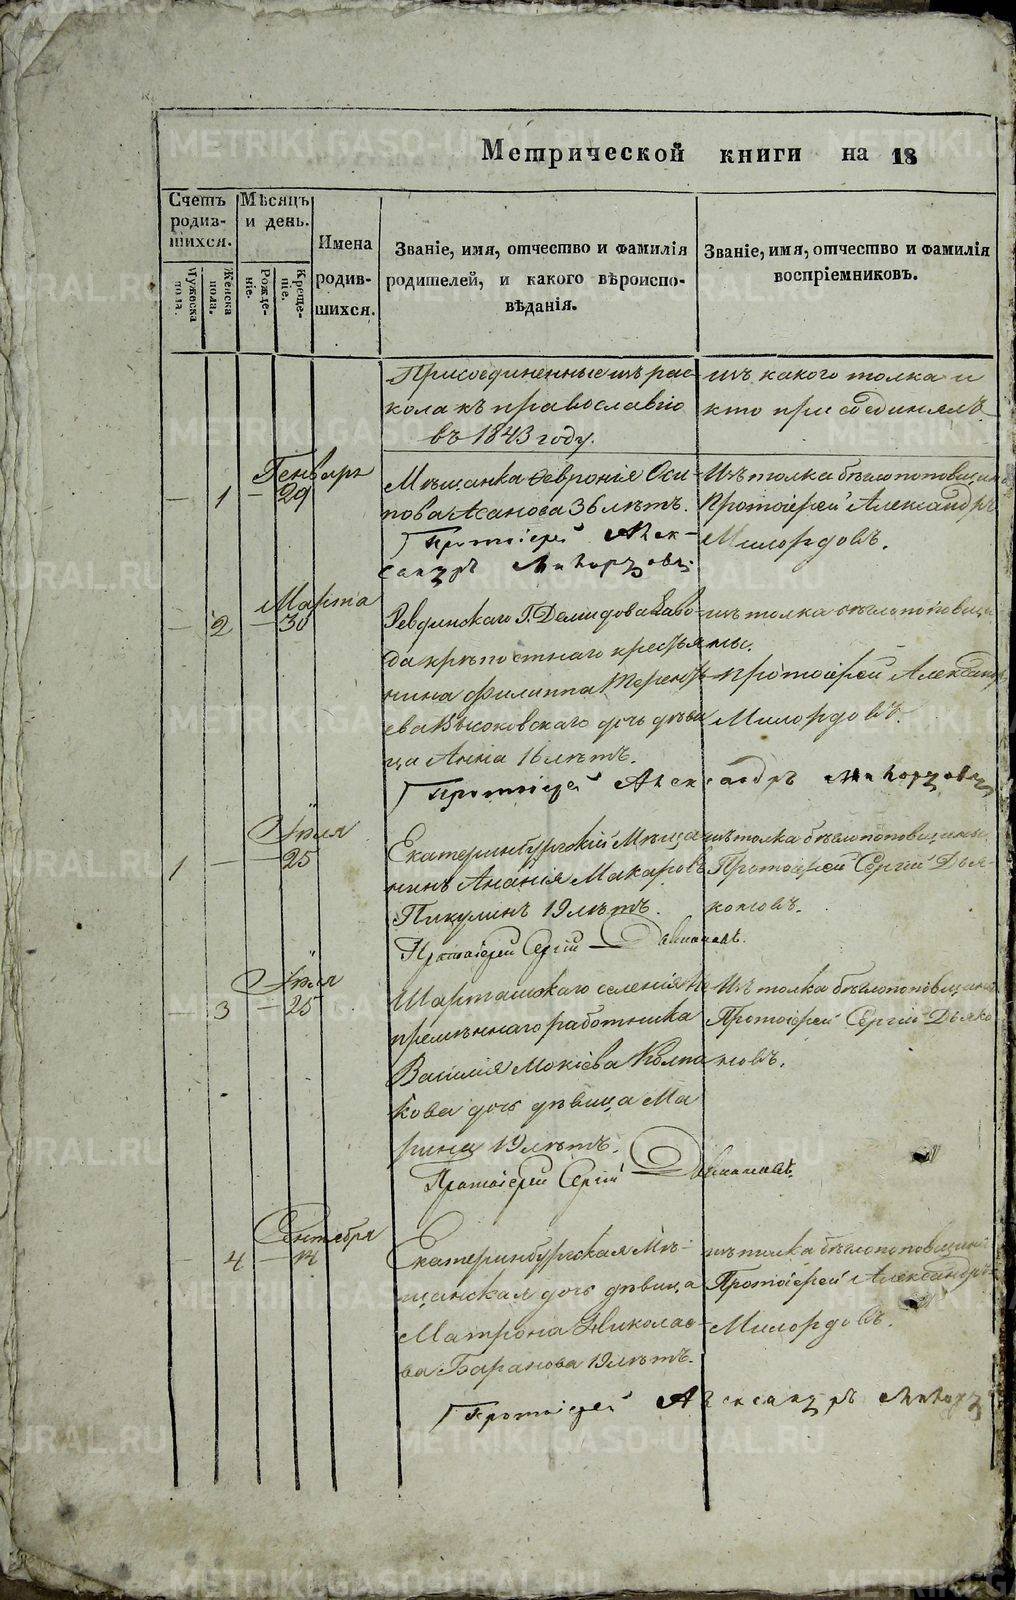 Метрической книги на 18
Счетъ родив-шихся.
Мужеска пола.
Женска пола.
Мѣсяцъ и день.
Рожде-ніе.
Креще-ніе.
Имена родив-шихся.
Званіе, имя, отчество и фамилія
родителей, и какого вѣроиспо-
вѣданія.
Званіе, имя, отчество и фамилія
воспріемниковъ.
Присоединенные изъ рас-
кола къ православію
въ 1843 году.
изъ какого толка и
кто присоединялъ
Генварь
— 1 — 29
Мѣщанка Февронія Оси-
пова Асанова 36 лѣтъ.
Протоіерей Алек-
сандръ Милордовъ.
Изъ толка бѣглопоповщины
Протоіерей Александръ
Милордовъ.
Марта
— 2 — 30
Ревдинскаго Г. Демидова Заво-
да крѣпостнаго крестья-
нина Филиппа Терентъ-
ева Высоковскаго дочь дѣви
ца Анна 16 лѣтъ.
Протоіерей Александръ Милордовъ
изъ толка бѣглопоповщи
ны.
Протоіерей Александръ
Милордовъ.
Іюля
1 — — 25
Екатеринбургскій Мѣща
нинъ Ананія Макаровъ
Пикулинъ 19 лѣтъ.
Протоіерей Сергій Дьяконовъ.
изъ толка бѣглопоповщины.
Протоіерей Сергій Дья-
коновъ.
Іюля
— 3 — 25
Шарташскаго селенія Не
премѣннаго работника
Василія Мокіева Колпа
кова дочь дѣвица Ма
рина 19 лѣтъ.
Протоіерей Сергій Дьяконовъ.
Изъ толка бѣглопоповщины
Протоіерей Сергій Дьяко
новъ.
Сентября
— 4 — 14
Екатеринбургская Мѣ-
щанская дочь дѣвица
Матрона Николае-
ва Баранова 19 лѣтъ.
Протоіерей Александръ Милорд
изъ толка бѣглопоповщины
Протоіерей Александръ
Милордовъ.
METRIKI.GASO-URAL.RU